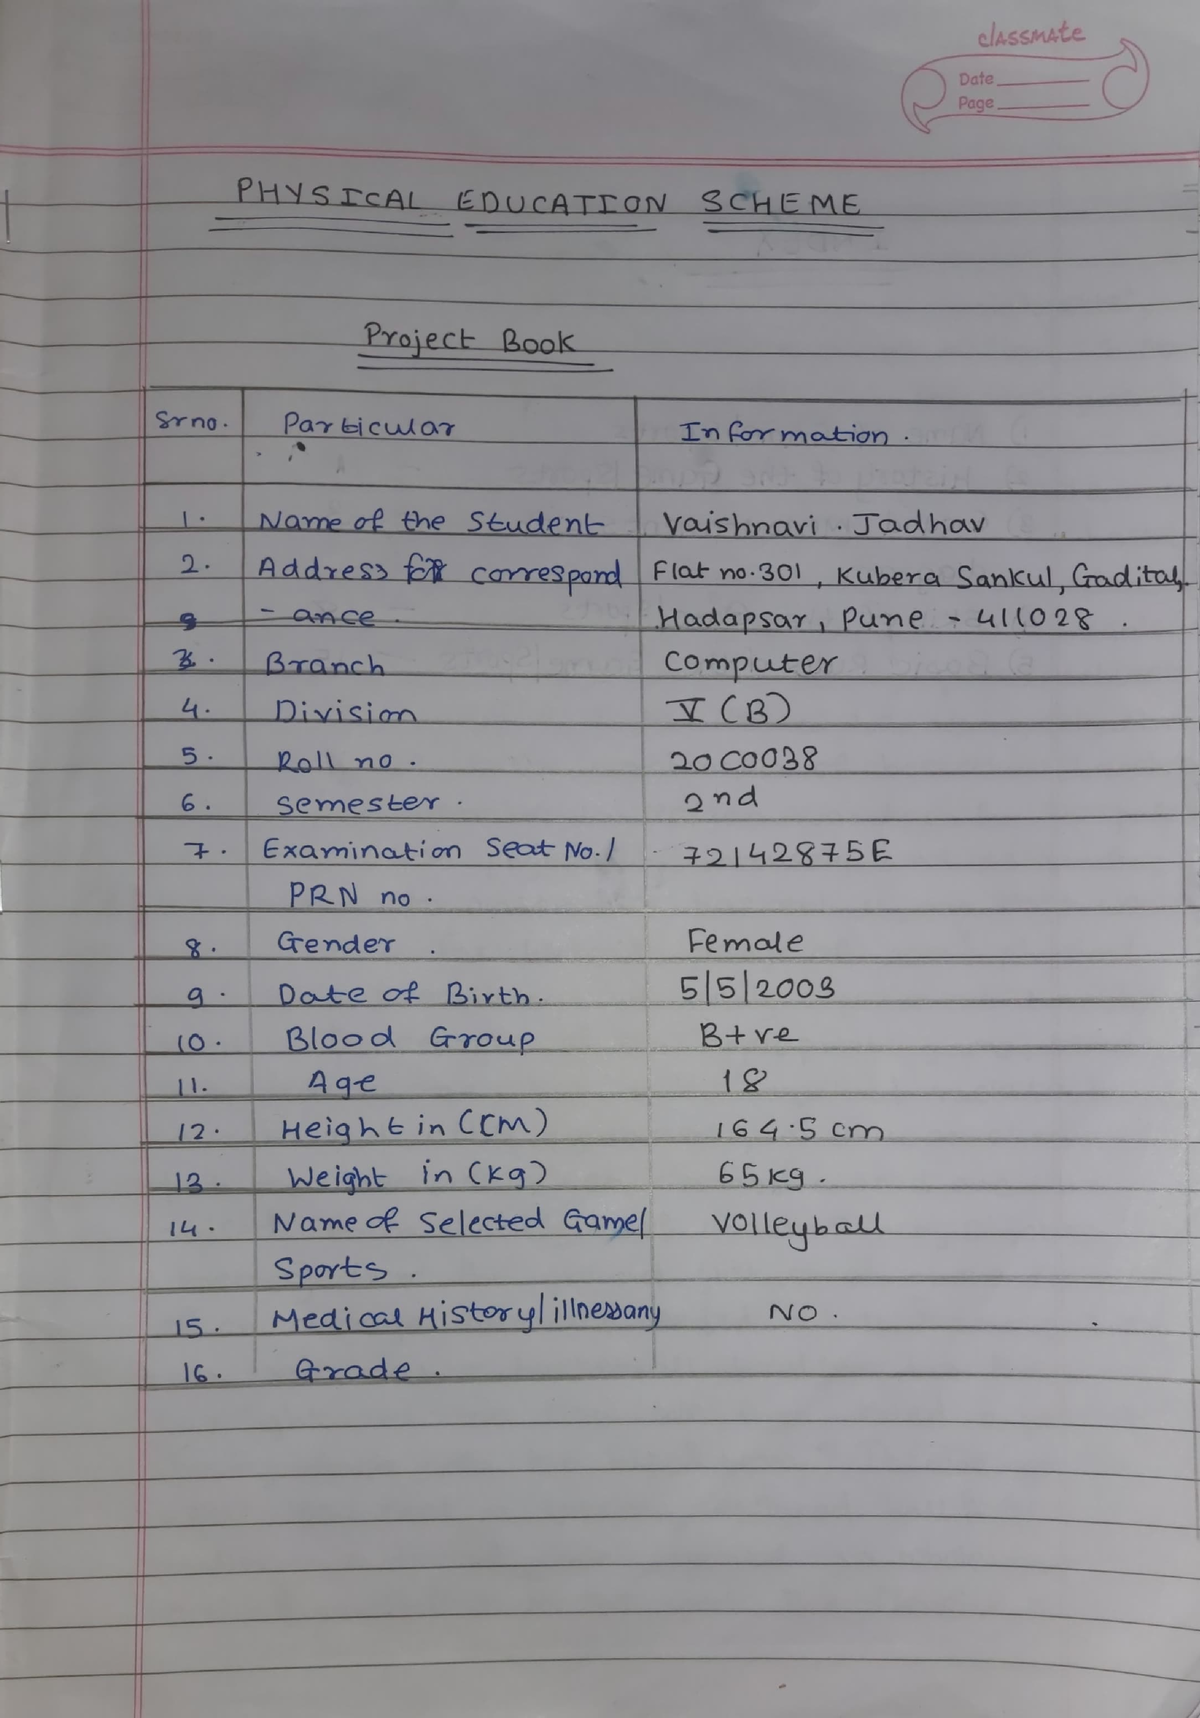 classmate
Date
Page
PHYSICAL EDUCATION SCHEME
Project Book
Sr no. Particular Information.
1. Name of the Student Vaishnavi . Jadhav
2. Address for correspond Flat no.301, Kubera Sankul, Gadital,
- ance. Hadapsar, Pune - 411028.
3. Branch Computer
4. Division V (B)
5. Roll no. 20C0038
6. Semester. 2nd
7. Examination Seat No./ 72142875E
PRN no.
8. Gender. Female
9. Date of Birth. 5/5/2003
10. Blood Group B+ve
11. Age 18
12. Height in (CM) 164.5 cm
13. Weight in (kg) 65kg.
14. Name of Selected Game/ Volleyball
Sports.
15. Medical History/illnessany NO.
16. Grade.